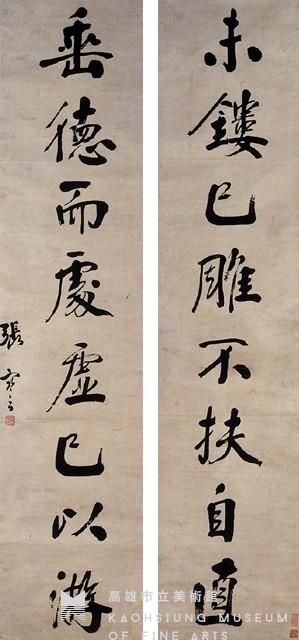 未鏤已雕不扶自直
垂德而處虛己以游
張
高雄市立美術館
KAOHSIUNG MUSEUM
OF FINE ARTS